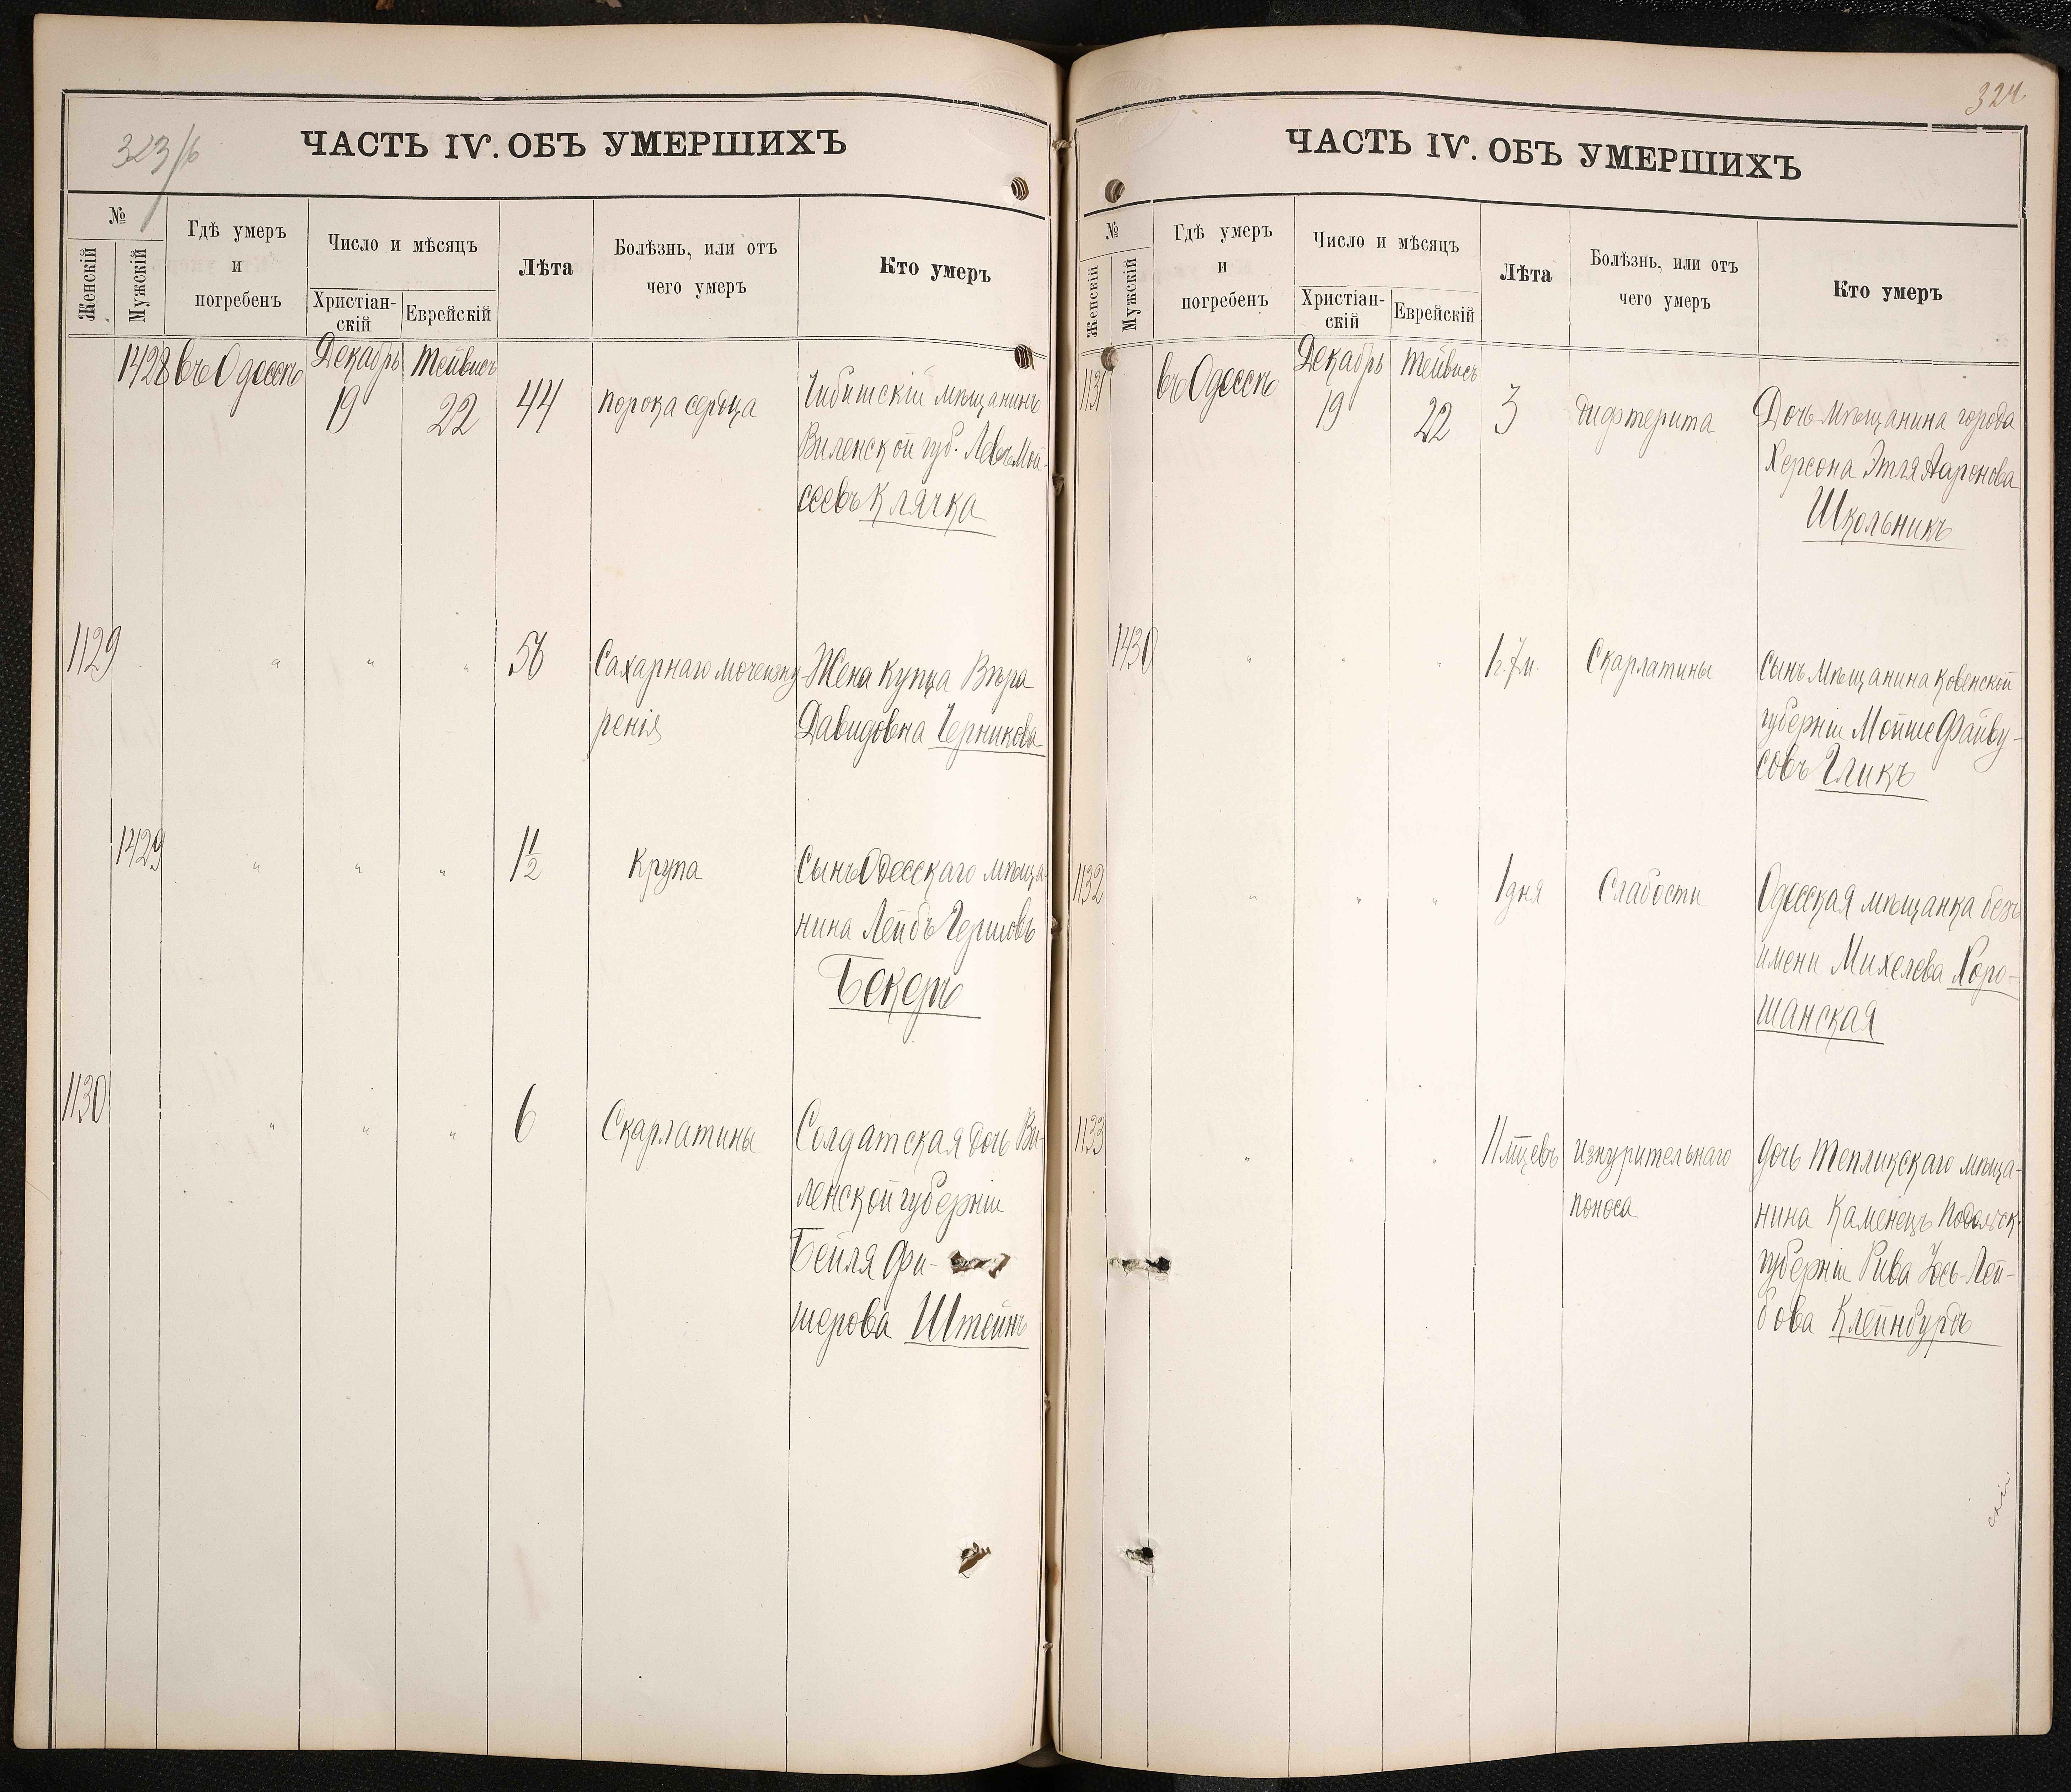 323/б
ЧАСТЬ IV. ОБЪ УМЕРШИХЪ
№
Женскій
Мужскій
Гдѣ умеръ
и
погребенъ
Число и мѣсяцъ
Христіан-
скій
Еврейскій
Лѣта
Болѣзнь, или отъ
чего умеръ
Кто умеръ
1428 въ Одессѣ Декабрь Тейвисъ
19 22 44 порока сердца
мѣщанинъ
Виленской губ. Левъ Мой-
сеевъ Клячка
1129 " " " 56 Сахарнаго мочеизну- Жена купца Вѣра
ренія Давидовна Черникова
1429 " " " 1½ Крупа Сынъ Одесскаго мѣща-
нина Лейбъ Гершовъ
Бекеръ
1130 " " " 6 Скарлатины Солдатская дочь Ви-
ленской губерніи
Бейля Фи-
шерова Штейнъ
324
ЧАСТЬ IV. ОБЪ УМЕРШИХЪ
№
Женскій
Мужскій
Гдѣ умеръ
и
погребенъ
Число и мѣсяцъ
Христіан-
скій
Еврейскій
Лѣта
Болѣзнь, или отъ
чего умеръ
Кто умеръ
1131 въ Одессѣ Декабрь Тейвисъ
19 22 3 дифтерита Дочь мѣщанина города
Херсона Этля Ааронова
Школьникъ
1430 " " " 1г. 7м. Скарлатины Сынъ мѣщанина Ковенской
губерніи Мойше Файву-
совъ Гликъ
1132 " " " 1 дня Слабости Одесская мѣщанка безъ
имени Михелева Хоро-
шанская
1133 " " " 11 мѣцевъ Изнурительнаго дочь Тепликскаго мѣща-
поноса нина Каменецъ Подольск.
губерніи Рива Іось-Лей-
бова Клейнбурдъ